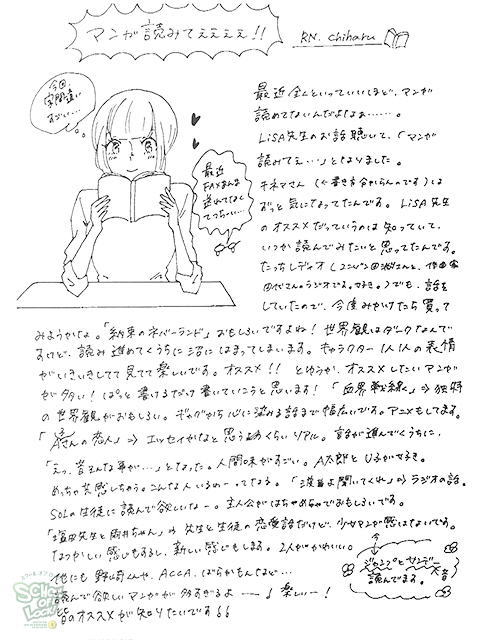 マンガ読みてぇぇぇぇ!!
RN. chiharu
今回、
字間違い
すごい…
最近
FAXあまり
送れてなくて
最近全くといっていいほど、マンガ
読めてないんだよなぁ……。
LiSA先生のお話聴いて、「マンガ
読みてぇ…」となりました。
ずっと気になってたんです。LiSA先生
のオススメだっていうのは知っていて、
いつか読んでみたいと思ってたんです。
でも、話を
していたので、今度みかけたら買って
みようかな。「約束のネバーランド」おもしろいですよね!世界観はダークなんで
すけど、読み進めてくうちに沼にはまってしまいます。キャラクター1人1人の表情
がいきいきしてて見てて楽しいです。オススメ!!というか、オススメしたいマンガ
が多い!ぱっと書けるだけ書いていこうと思います!「血界戦線」⇒独特
の世界観がおもしろい。ギャグから心に染みる話まで幅広いです。アニメもしてます。
「Aさんの恋人」⇒エッセイかなと思うくらいリアル。話が進んでくうちに、
「えっ、昔そんな事が…」となった。人間味がすごい。A太郎とU子が好き。
めっちゃ共感しちゃう。こんな人いるわー。ってなる。「波よ聞いてくれ」⇒ラジオの話。
SOLの生徒に読んで欲しいなー。主人公がはちゃめちゃでおもしろいです。
「塩田先生と雨井ちゃん」⇒先生と生徒の恋愛話だけど、少女マンガ感はないです。
なつかしい感じもするし、新しい感じもします。2人がかわいい♡
他にも野崎くんや、ACCA、ばらかもんなど…
読んで欲しいマンガが多すぎるよー!楽しー!
皆のオススメが知りたいです
ジャンプとサンデー
読んでます。
SCHOOL OF LOCK!